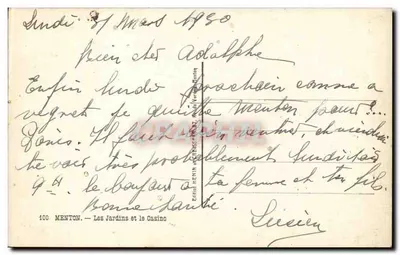 Lundi 31 Mars 1930
Mien cher Adolphe
Enfin lundi prochain comme a
regret je quitte Menton pour
Paris. Il faut rentrer, et viendrai
te voir très probablement lundi soir
9 H. le bonjour a ta femme et ton fils.
Bonne santé.
Lucien
100 MENTON. — Les Jardins et le Casino